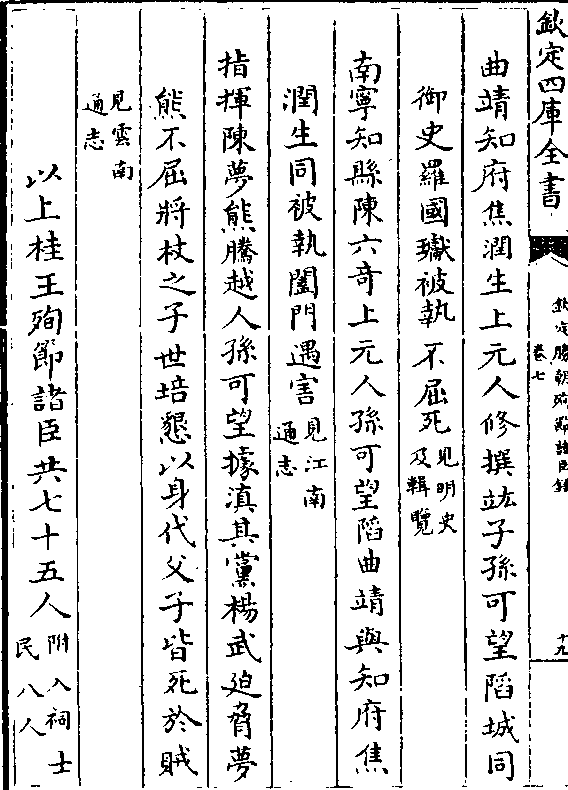 欽定四庫全書
欽定勝朝殉節諸臣錄
卷七
十九
曲靖知府焦潤生上元人修撰竑子孫可望陷城同
御史羅國瓛被執不屈死見明史及輯覽
南寧知縣陳六奇上元人孫可望陷曲靖與知府焦
潤生同被執闔門遇害見江南通志
指揮陳夢熊騰越人孫可望據滇其黨楊武廹脅夢
熊不屈將杖之子世培懇以身代父子皆死於賊
見雲南通志
以上桂王殉節諸臣共七十五人附入祠士民八人